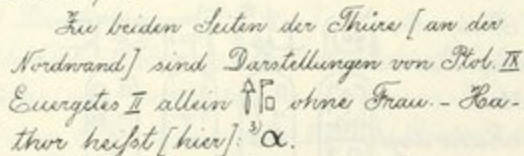 Zu beiden Seiten der Thüre [an der
Nordwand] sind Darstellungen von Ptol. IX
Euergetes II allein 𓋹𓊹𓉗 ohne Frau. - Ha-
thor heißt [hier]: ³⁾ α.